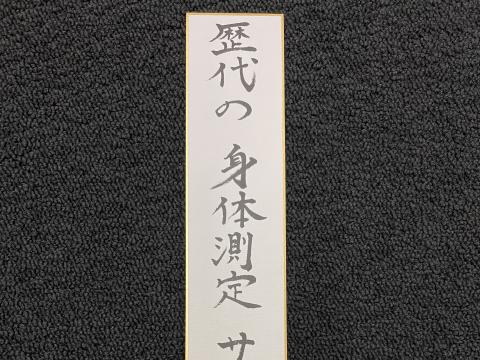 歴代の 身体測定 サ